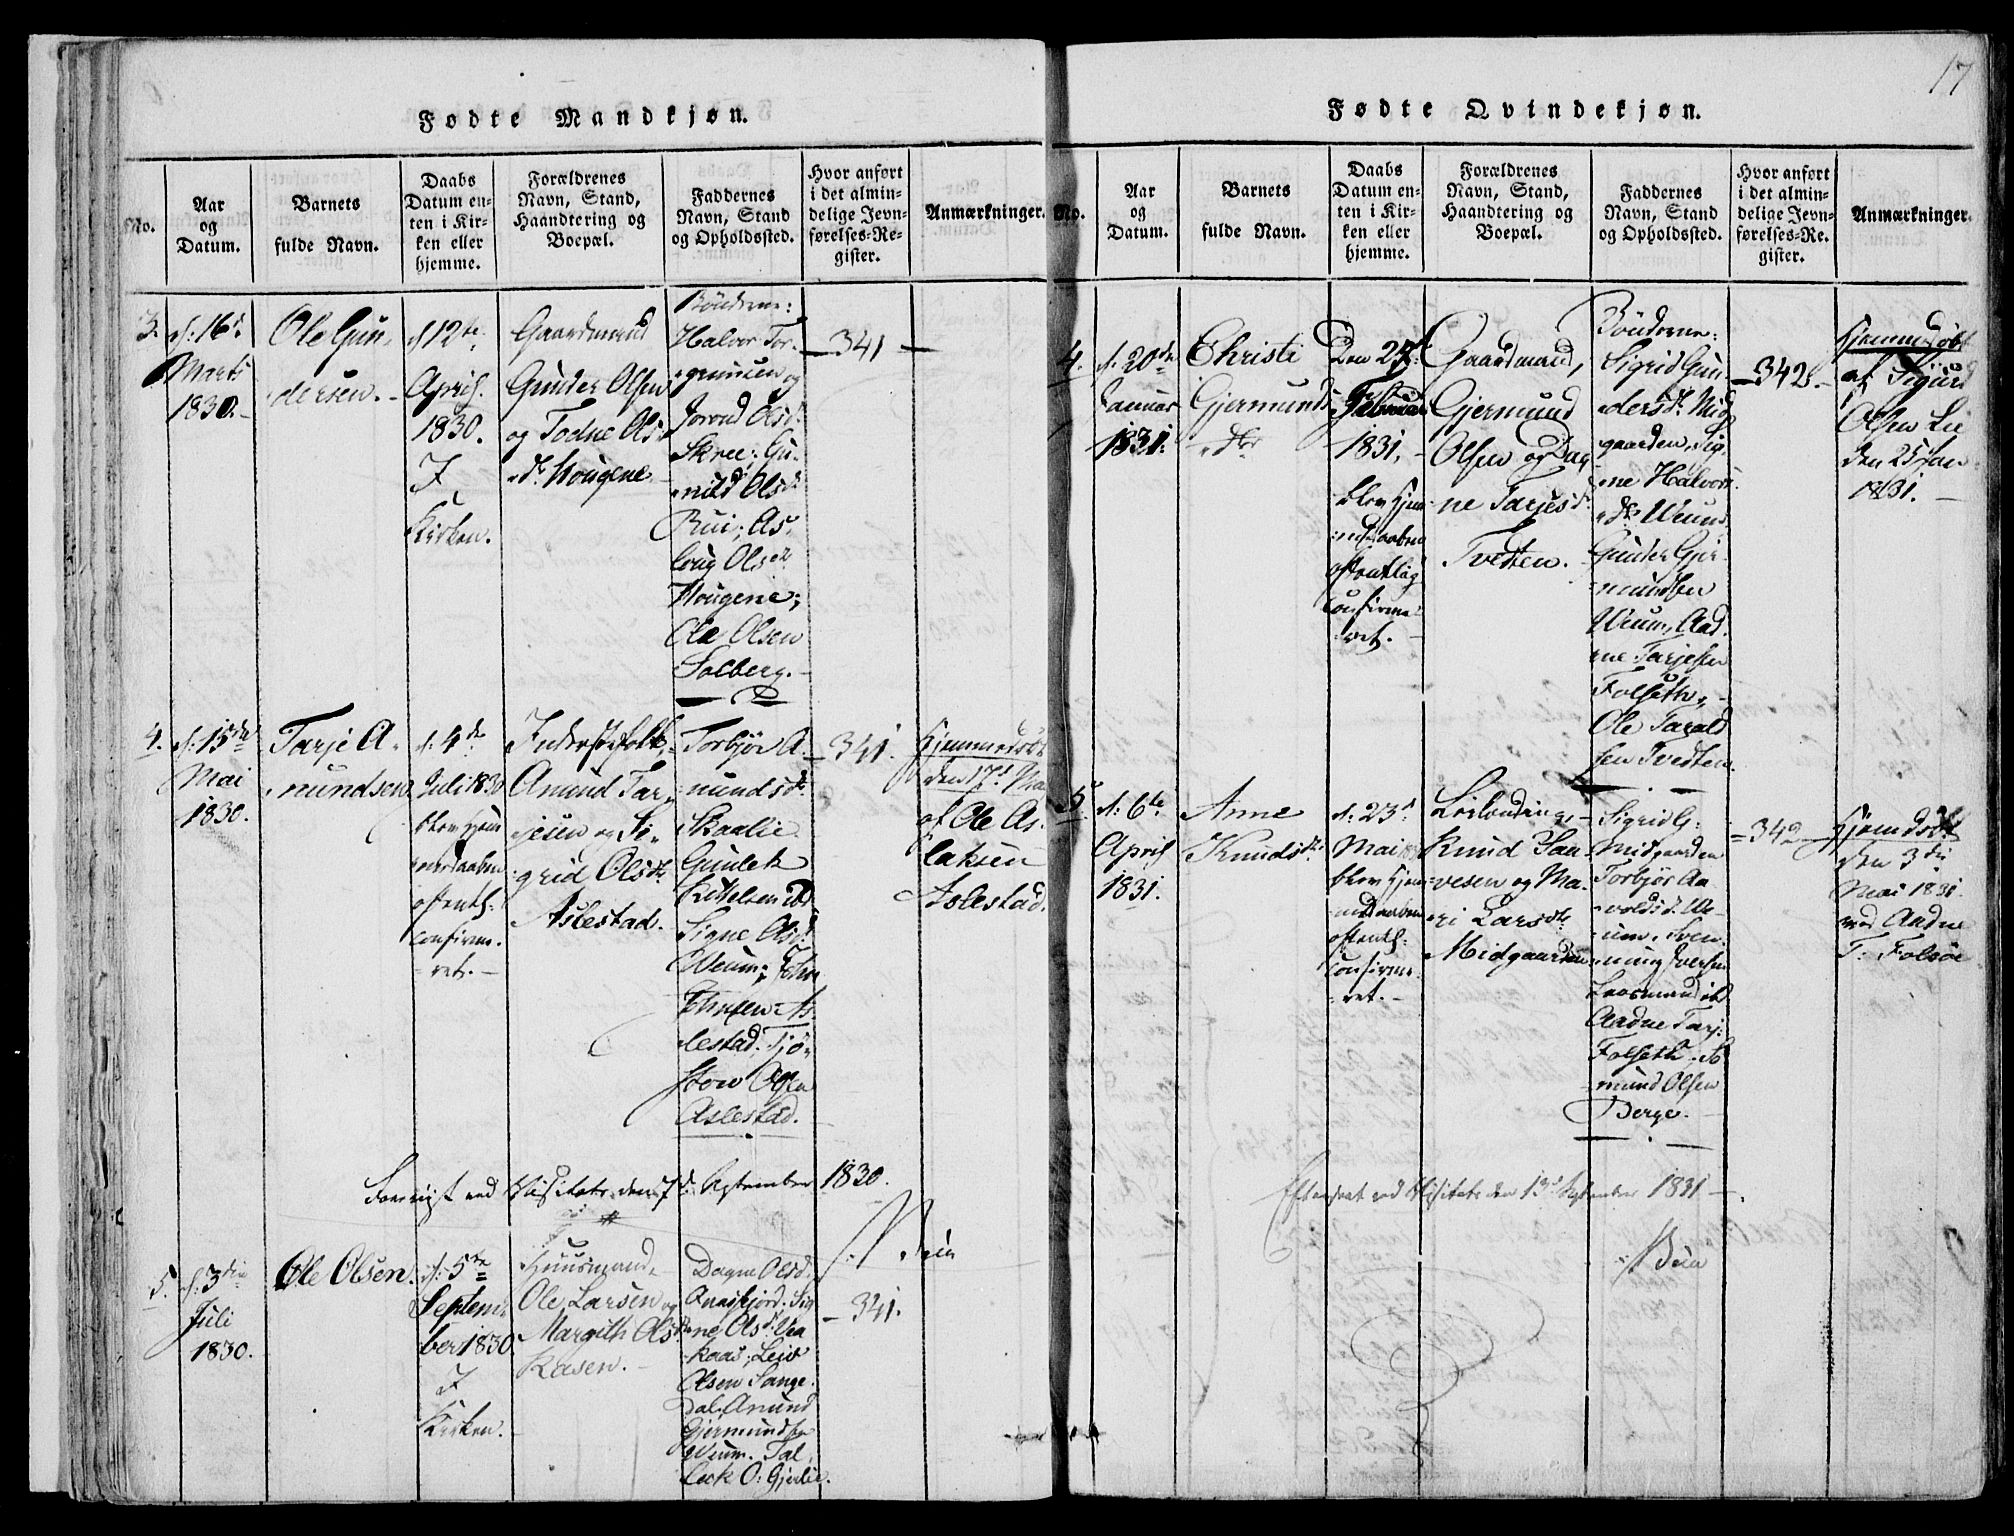 17
Fødte Mandkjøn.
No.
Aar
og
Datum.
Barnets
fulde Navn.
Daabs
Datum en-
ten i Kir-
ken eller
hjemme.
Forældrenes
Navn, Stand,
Haandtering og
Boepæl.
Faddernes
Navn, Stand
og Opholdssted.
Hvor anført
i det almin-
delige Jevn-
førelses-Re-
gister.
Anmærkninger.
3.
d: 16d
Marts
1830.
Ole Gun-
dersen.
d 12te
April
1830.
I
Kirken.
Gaardmand
Gunder Olsen
og Todne Ols-
dr. Hougene
Bönderne:
Halvor Tor-
grimsen og
Jorond Olsd.
Skree; Gu-
nild Olsdr
Rui; As-
loug Olsdr
Hougene;
Ole Olsen
Solberg.
341
4.
d: 15de
Mai
1830.
Tarje A-
nundsen
d: 4de
Juli 1830
blev hjem-
medaaben
offentl:
confirme-
ret.
Inderstfolk,
Anund Tar-
jesen og Si-
grid Olsdr.
Aslestad.
Torbjør A-
nundsdr.
Skaalie
Gunlek
Kittelsen ibd
Signe Olsd.
Weum; John
Johnsen As-
lestad. Tjö-
stov Olsen
Aslestad.
341.
Hjemmedøbt
den 17d Mai
af Ole As-
laksen
Aslestad.
Foreviist ved Visitats den 7d. September 1830.
5.
d: 3die
Juli
1830.
Ole Olsen.
d: 5te
Septem-
ber 1830
I
Kirken.
Huusmand
Ole Larsen og
Margith Olsdr
Kasen.
Dagne Olsd.
Sig-
ne Olsd. Vra-
kaas; Leiv
Olsen Lange-
dal. Anund
Gjermundsen
Weum. Tal-
leck O: Gjerlie.
341.
Fødte Qvindekjøn.
No.
Aar
og
Datum.
Barnets
fulde Navn.
Daabs
Datum en-
ten i Kir-
ken eller
hjemme.
Forældrenes
Navn, Stand,
Haandtering og
Boepæl.
Faddernes
Navn, Stand
og Opholdssted.
Hvor anført
i det almin-
delige Jevn-
førelses-Re-
gister.
Anmærkninger.
4.
d: 20de
Januar
1831.
Christi
Gjermunds-
dtr
Den 27d
Februar
1831,
blev hjem-
medaaben
offentlig
confirme-
ret.
Gaardmand,
Gjermund
Olsen og Dag-
ne Tarjesdr
Tvedten.
Bönderne:
Sigrid Gun-
dersdr. Mid-
gaarden, Sig-
ne Halvors-
dtr Weum,
Gunder Gjer-
mundsen
Weum, Aad-
ne Tarjesen
Folseth,
Ole Tarald-
sen Tvedten.
342.
Hjemmedøbt
af Sigurd
Olsen Lie
den 25 Jan-
1831.
5.
d: 6te
April
1831.
Anne
Knudsdr.
d: 23d
Mai
blev hjem-
medaaben
offentl:
confirme-
ret.
Leilending,
Knud San-
vesen og Ma-
ri Larsdtr
Midgaarden
Sigrid G:
Midgaarden
Torbjør Aa-
voldsd. We-
um, Sven-
nung Iversen
Laasmand ibd.
Aadne Tarj:
Folseth.
mund Olsen
Berge.
342
Hjemdøbt
den 3die
Mai 1831.
ved Aadne
T. Folsöe
Efterseet ved Visitats den 13d September 1831